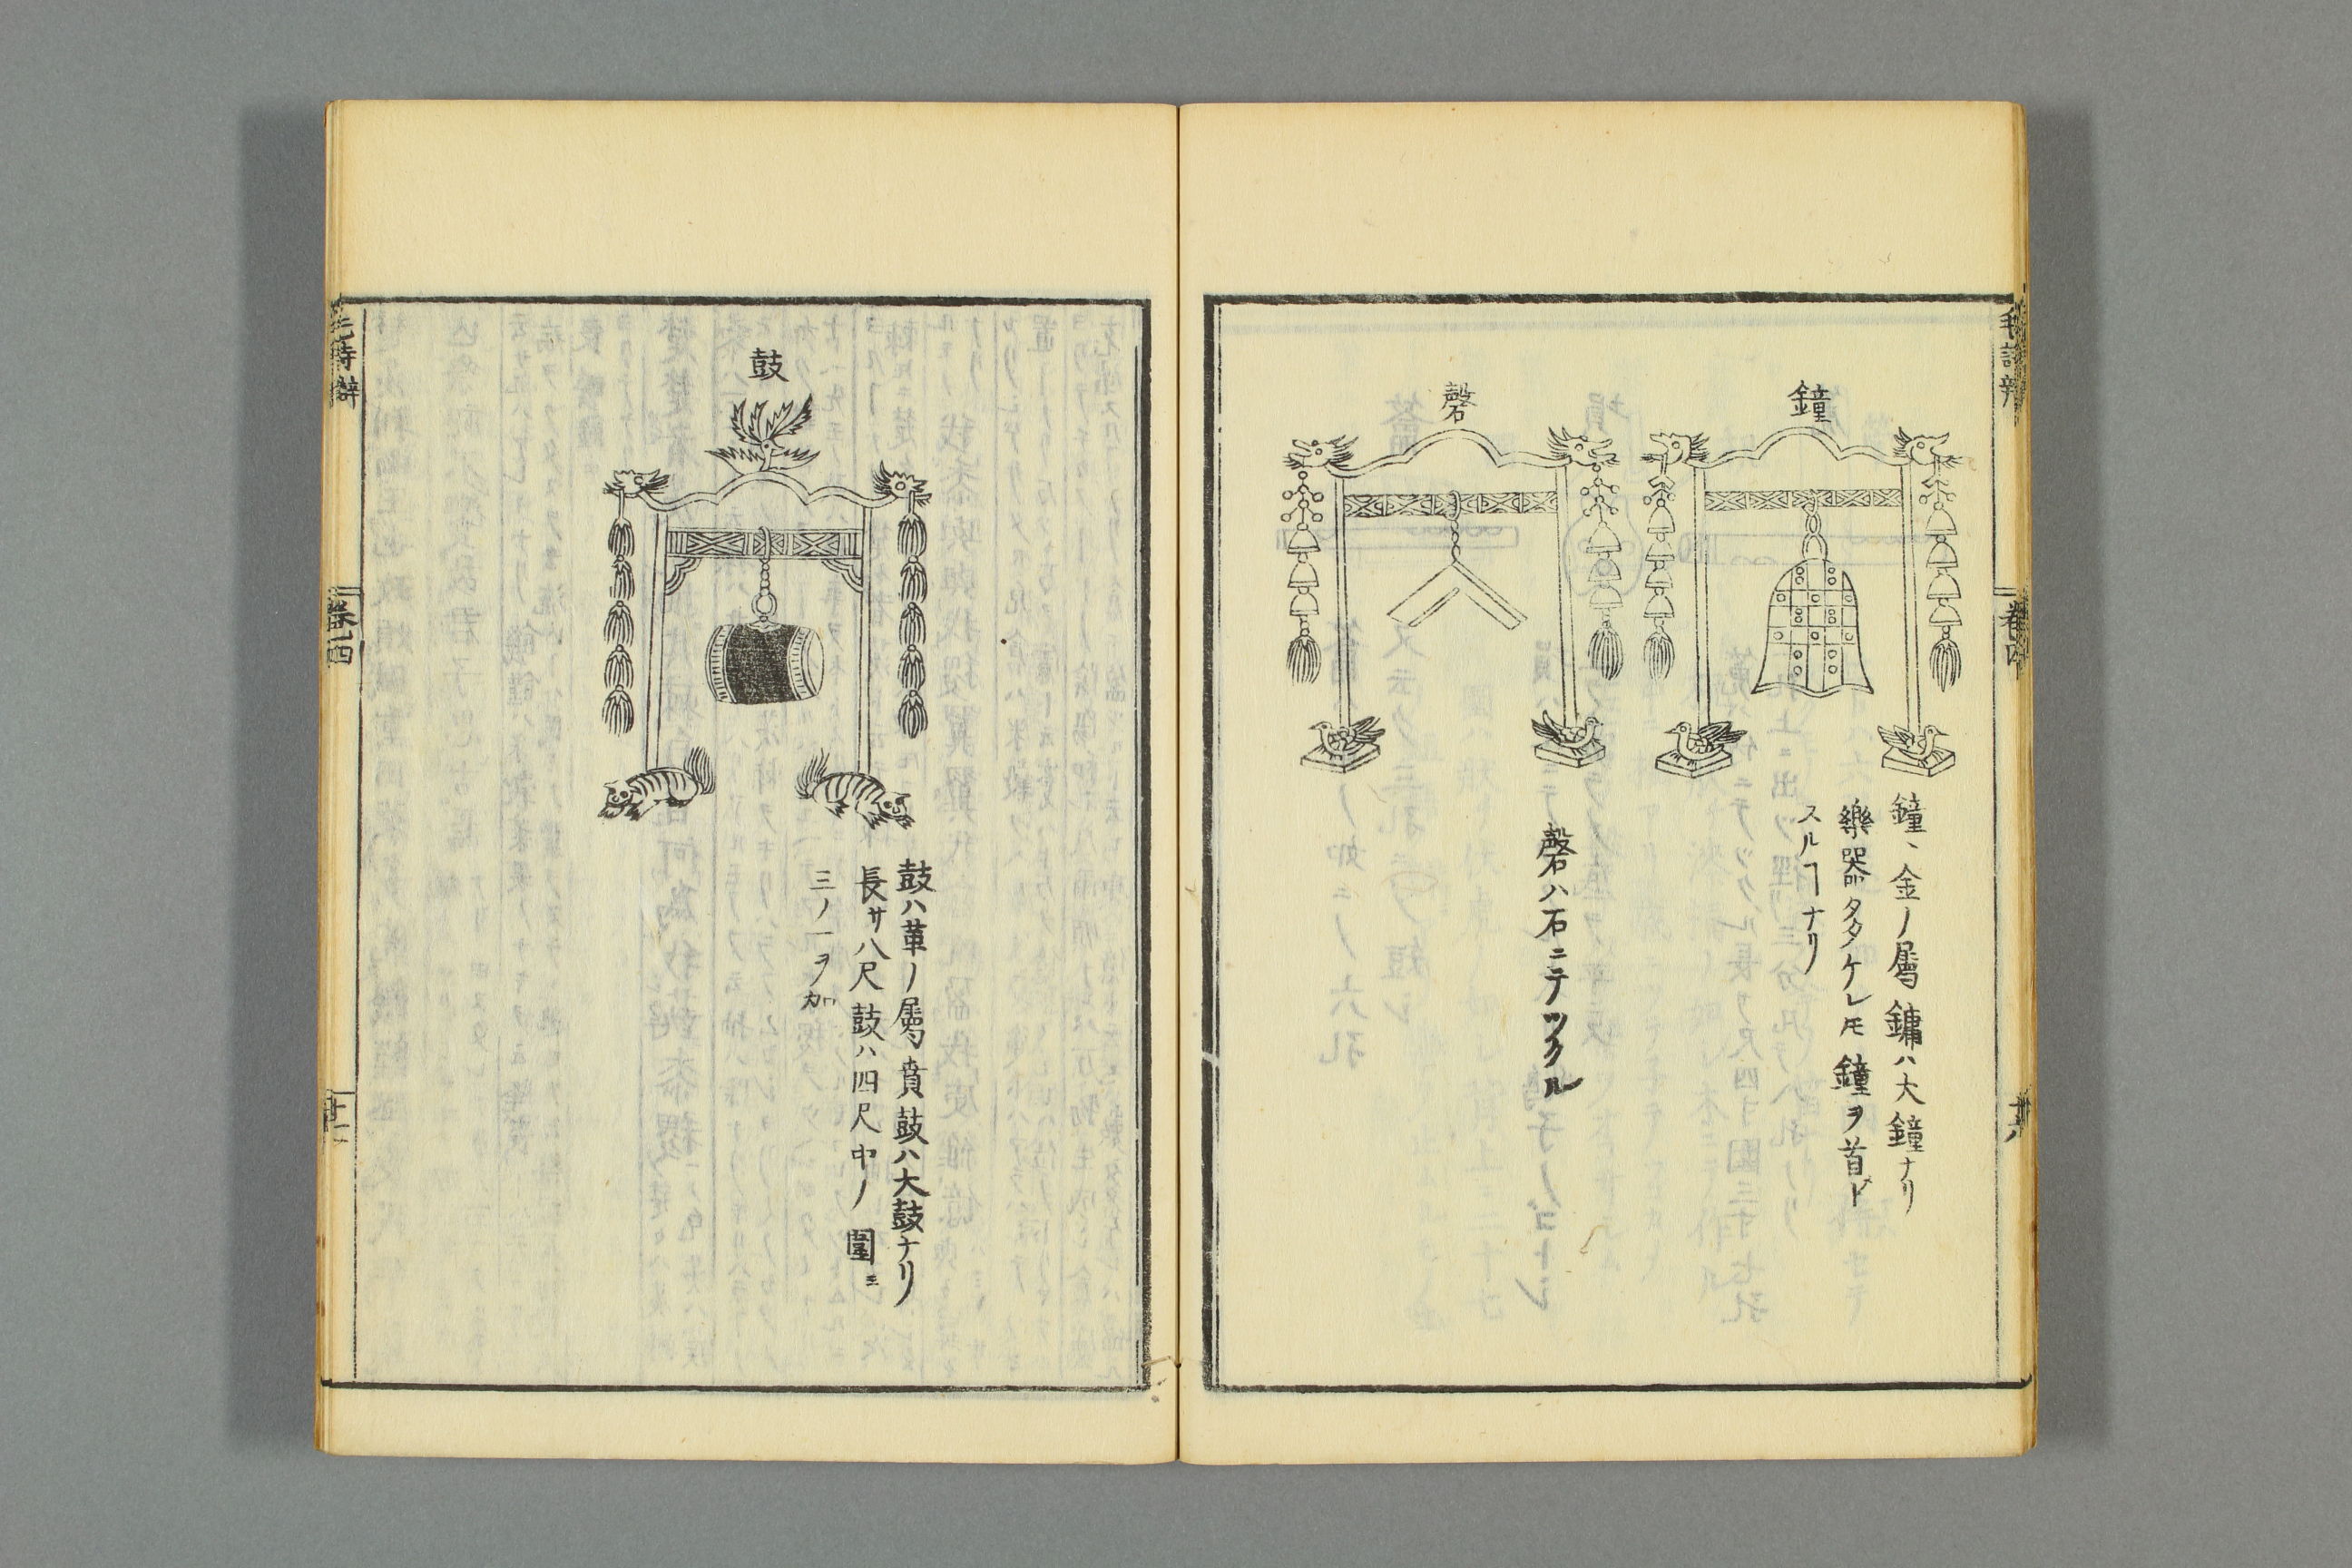 毛詩辨
卷四
鐘
鐘ハ金ノ屬鏞ハ大鐘ナリ
樂器タタケレモ鐘ヲ首ド
スルヿナリ
磬
磬ハ石ニテツクル
鼓
鼓ハ革ノ屬賁鼓ハ大鼓ナリ
長サ八尺鼓ハ四尺中ノ圍ミ
三ノ一ヲ加
毛詩辯
卷四